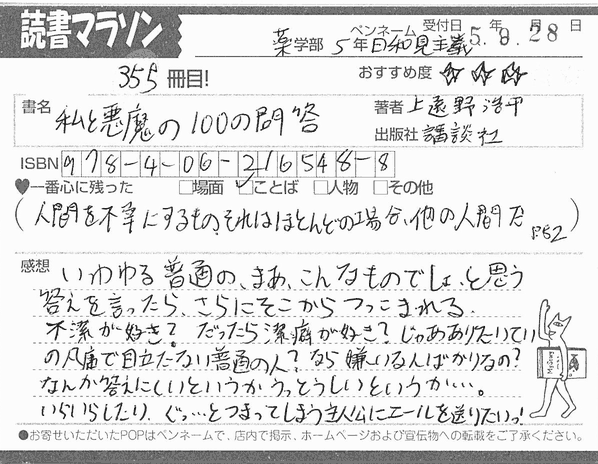 読書マラソン
受付日 5.年 9.月 28日
薬学部 5年 ペンネーム 日和見主義
355冊目!
おすすめ度 ☆☆☆
書名 私と悪魔の100の問答
著者 上遠野浩平
出版社 講談社
ISBN 978-4-06-216548-8
♥一番心に残った □場面 ☑ことば □人物 □その他
(人間を不幸にするもの、それはほとんどの場合、他の人間だ P62)
感想 いわゆる普通の、まあ、こんなものでしょ、と思う
答えを言ったら、さらにそこからつっこまれる。
不潔が好き? だったら潔癖が好き? じゃあありたいてい
の凡庸で目立たない普通の人? なら嫌いなんばかりなの?
なんか答えにくいというかうっとうしいというか…。
いらいらしたり、ぐっ…とつまってしまう主人公にエールを送りたいっ!
●お寄せいただいたPOPはペンネームで、店内で掲示、ホームページおよび宣伝物への転載をご了承ください。